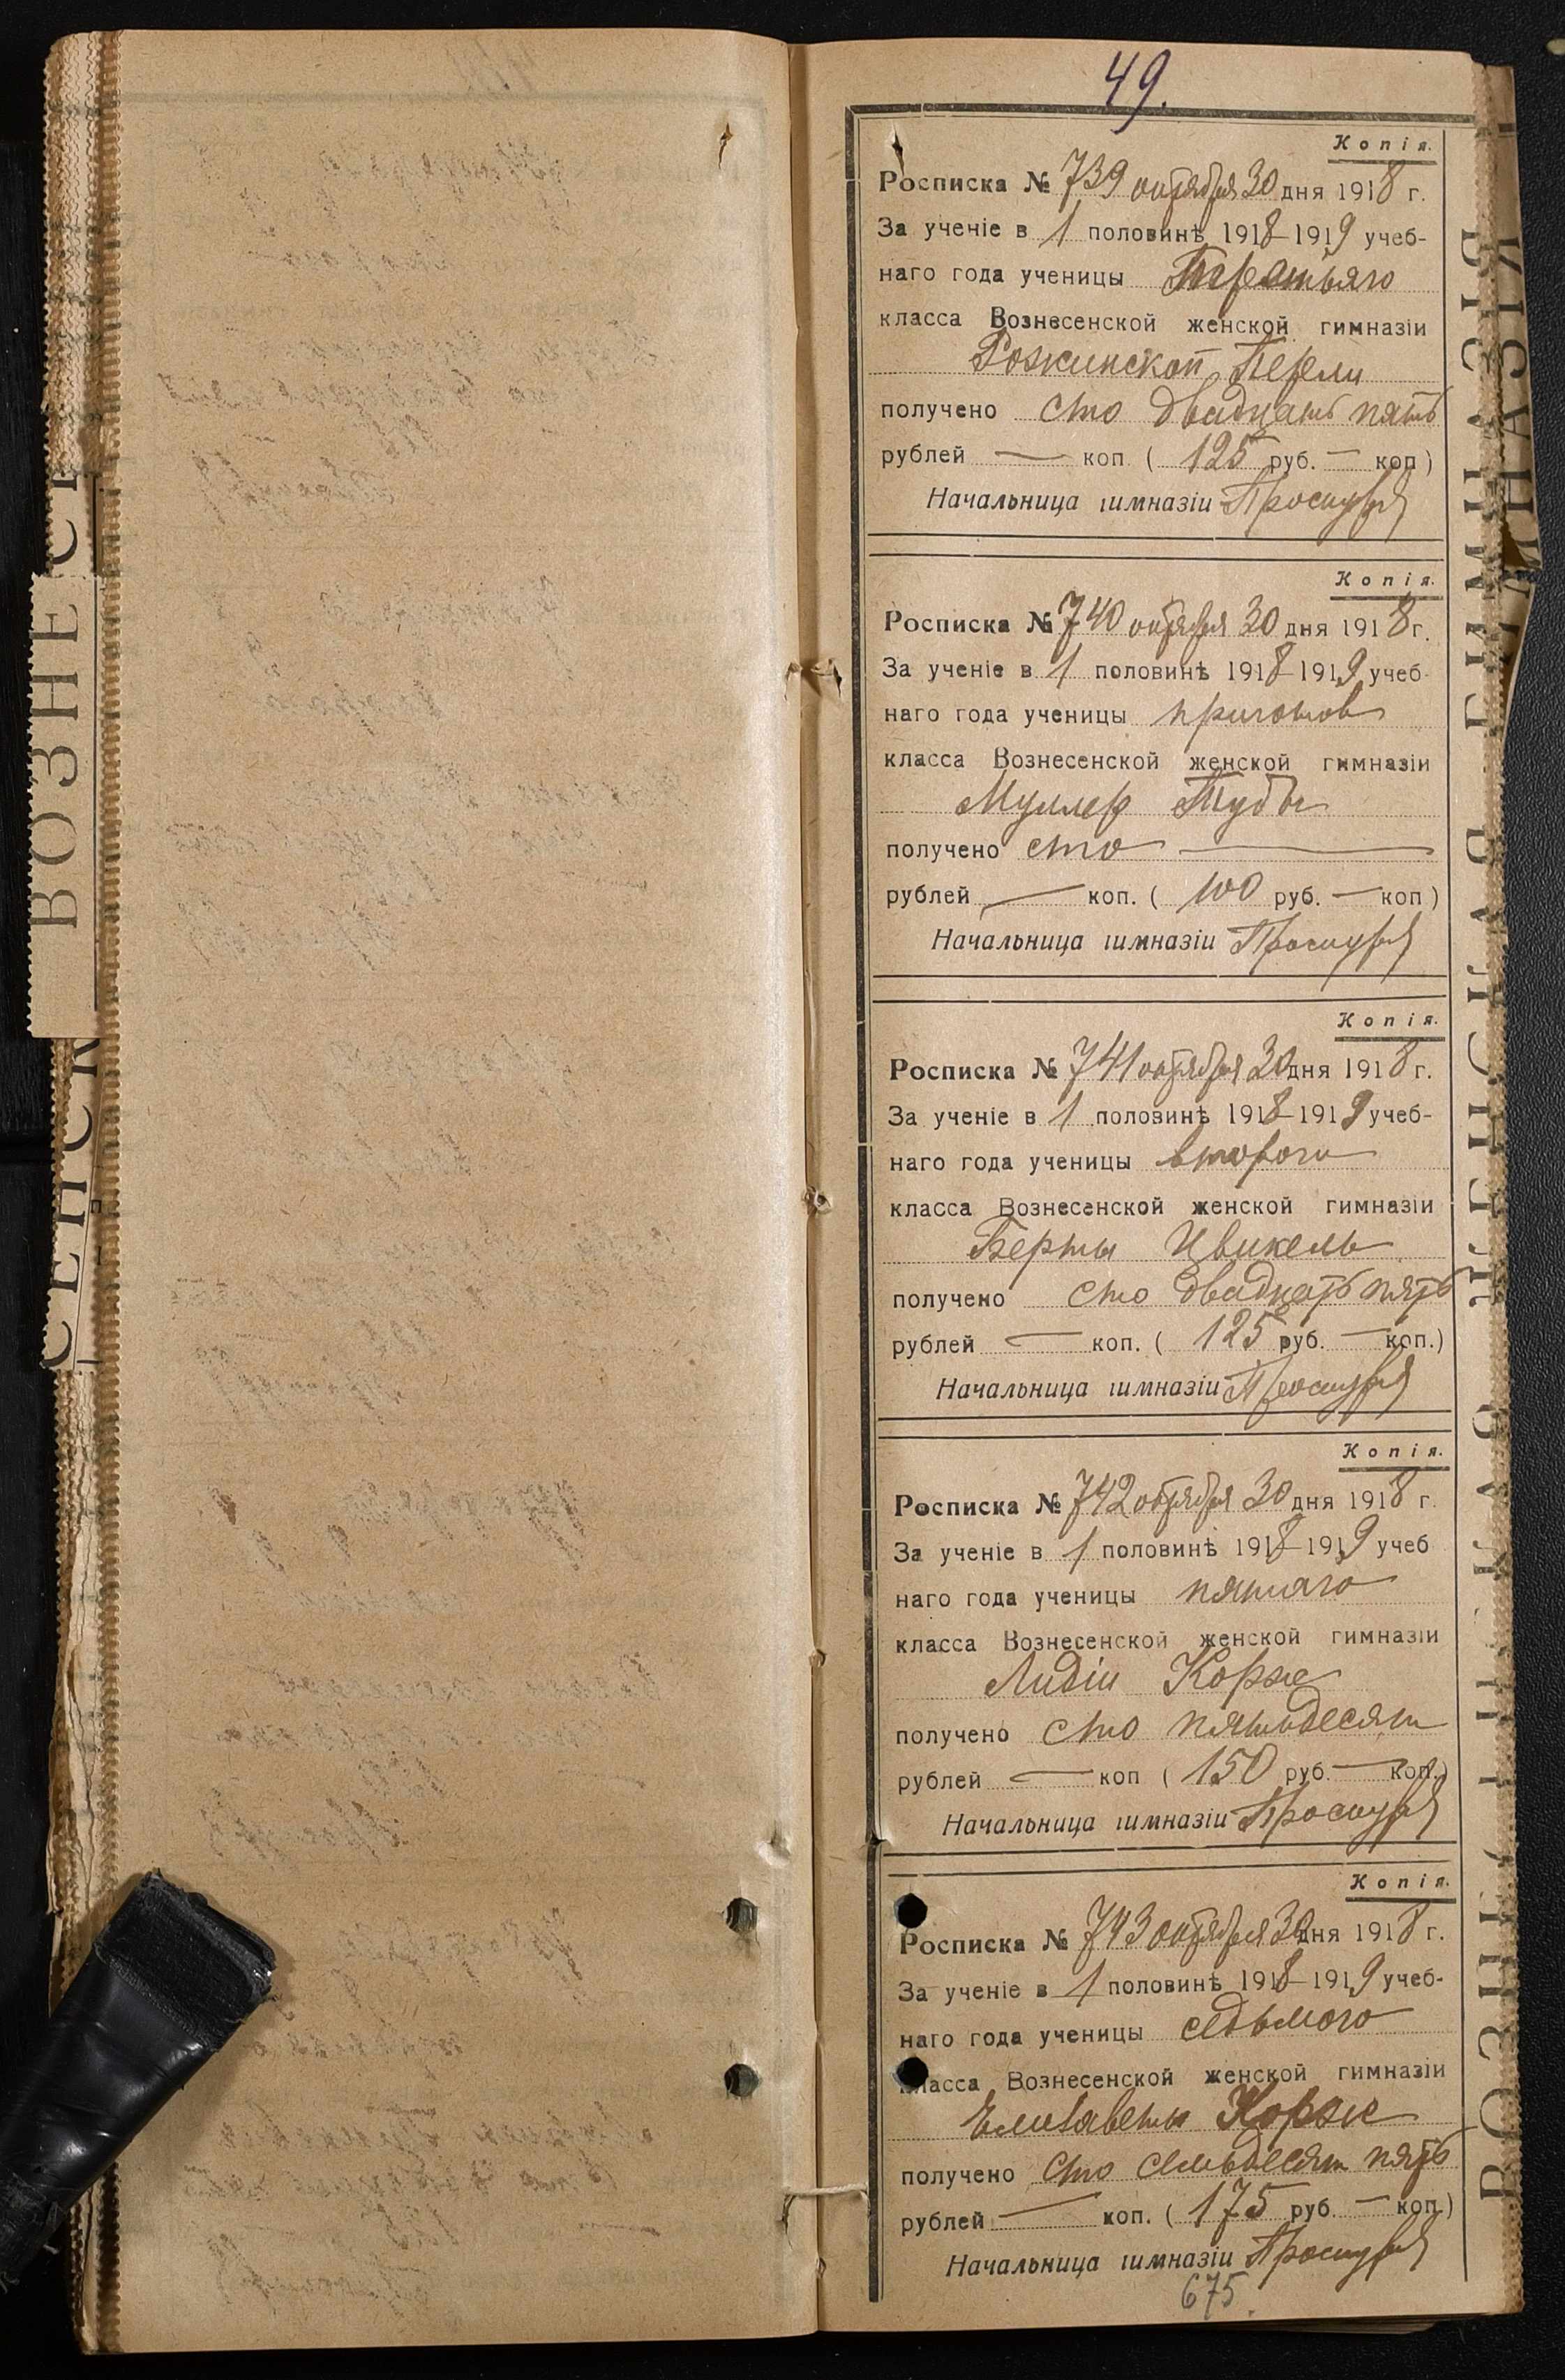 49.
Копія.
Росписка № 739 октября 30 дня 1918 г.
За ученіе в 1 половинѣ 1918-1919 учеб-
наго года ученицы Третьяго
класса Вознесенской женской гимназіи
Рожинской Перли
получено сто двадцать пять
рублей — коп. ( 125 руб. — коп )
Начальница гимназіи
Копія.
Росписка № 740 октября 30 дня 1918 г.
За ученіе в 1 половинѣ 1918-1919 учеб-
наго года ученицы приготов
класса Вознесенской женской гимназіи
Муллер Тубы
получено сто —
рублей — коп. ( 100 руб. — коп )
Начальница гимназіи
Копія.
Росписка № 741 октября 30 дня 1918 г.
За ученіе в 1 половинѣ 1918-1919 учеб-
наго года ученицы второго
класса Вознесенской женской гимназіи
Берты Цвикель
получено сто двадцать пять
рублей — коп. ( 125 руб. — коп.)
Начальница гимназіи
Копія.
Росписка № 742 октября 30 дня 1918 г.
За ученіе в 1 половинѣ 1918-1919 учеб
наго года ученицы пятаго
класса Вознесенской женской гимназіи
Лидіи Корже
получено сто пятьдесят
рублей — коп ( 150 руб. — коп.)
Начальница гимназіи
Копія.
Росписка № 743 октября 30 дня 1918 г.
За ученіе в 1 половинѣ 1918-1919 учеб-
наго года ученицы седьмого
класса Вознесенской женской гимназіи
Елизаветы Корже
получено сто семьдесят пять
рублей — коп. ( 175 руб. — коп.)
Начальница гимназіи
675.
ВОЗНЕ
СЕНСК